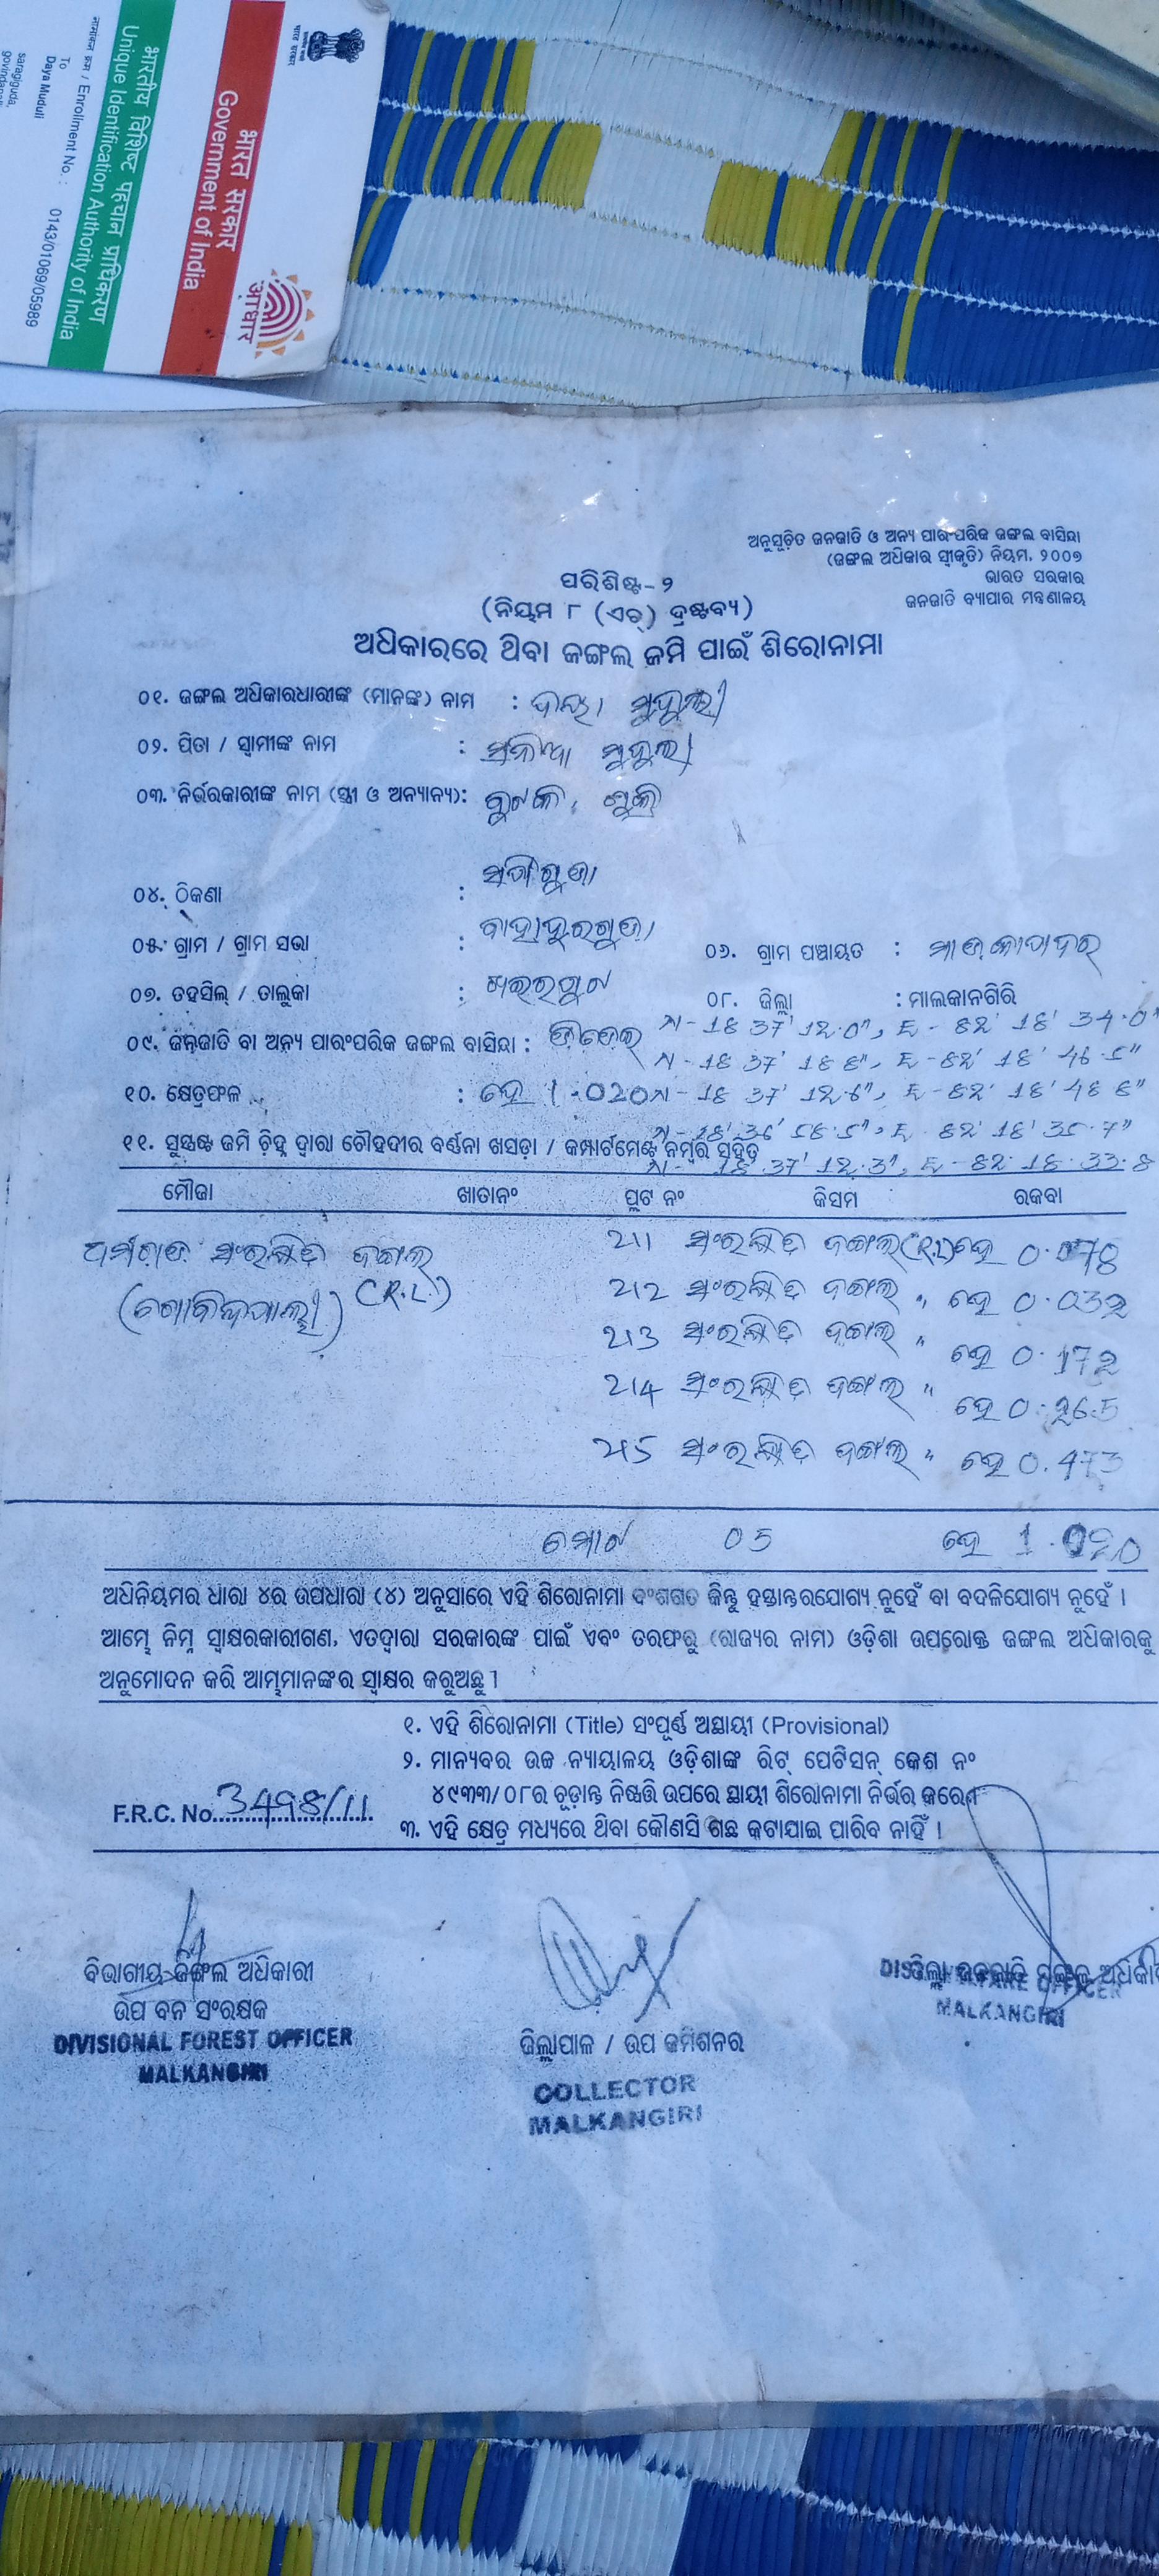 भारत सरकार
Government of India
भारतीय विशिष्ट पहचान प्राधिकरण
Unique Identification Authority of India
नामांकन क्रम / Enrollment No. : 0143/01069/05989
To
Daya Muduli
saragiguda,
आधार
ଅନୁସୂଚିତ ଜନଜାତି ଓ ଅନ୍ୟ ପାରଂପରିକ ଜଙ୍ଗଲ ବାସିନ୍ଦା
(ଜଙ୍ଗଲ ଅଧିକାର ସ୍ୱୀକୃତି) ନିୟମ, ୨୦୦୭
ଭାରତ ସରକାର
ଜନଜାତି ବ୍ୟାପାର ମନ୍ତ୍ରଣାଳୟ
ପରିଶିଷ୍ଟ-୨
(ନିୟମ ୮ (ଏଚ୍) ଦ୍ରଷ୍ଟବ୍ୟ)
ଅଧିକାରରେ ଥିବା ଜଙ୍ଗଲ ଜମି ପାଇଁ ଶିରୋନାମା
୦୧. ଜଙ୍ଗଲ ଅଧିକାରଧାରୀଙ୍କ (ମାନଙ୍କ) ନାମ : ଦୟା ମୁଦୁଲୀ
୦୨. ପିତା / ସ୍ୱାମୀଙ୍କ ନାମ : ମୁଦୁଲୀ
୦୩. ନିର୍ଭରକାରୀଙ୍କ ନାମ (ସ୍ତ୍ରୀ ଓ ଅନ୍ୟାନ୍ୟ):
୦୪. ଠିକଣା :
୦୫. ଗ୍ରାମ / ଗ୍ରାମ ସଭା : ବାହାଦୁରଗୁଡ଼ା ୦୬. ଗ୍ରାମ ପଞ୍ଚାୟତ :
୦୭. ତହସିଲ୍ / ତାଲୁକା : ଖଇରପୁଟ ୦୮. ଜିଲ୍ଲା : ମାଲକାନଗିରି
୦୯. ଜନଜାତି ବା ଅନ୍ୟ ପାରଂପରିକ ଜଙ୍ଗଲ ବାସିନ୍ଦା : N-18 37' 12.0", E-82' 18' 34.0"
୧୦. କ୍ଷେତ୍ରଫଳ : ହେ 1.020
୧୧. ସୁସ୍ପଷ୍ଟ ଜମି ଚିହ୍ନ ଦ୍ୱାରା ଚୌହଦୀର ବର୍ଣ୍ଣନା ଖସଡ଼ା / କମ୍ପାର୍ଟମେଣ୍ଟ ନମ୍ବର ସହିତ
ମୌଜା ଖାତାନଂ ପ୍ଲଟ ନଂ କିସମ ରକବା
ସଂରକ୍ଷିତ ଜଙ୍ଗଲ 211 ସଂରକ୍ଷିତ ଜଙ୍ଗଲ ହେ 0.078
(ଗୋବିନ୍ଦପାଲ୍ଲୀ) 212 ସଂରକ୍ଷିତ ଜଙ୍ଗଲ " ହେ 0.032
213 ସଂରକ୍ଷିତ ଜଙ୍ଗଲ " ହେ 0.172
214 ସଂରକ୍ଷିତ ଜଙ୍ଗଲ " ହେ 0.265
215 ସଂରକ୍ଷିତ ଜଙ୍ଗଲ " ହେ 0.473
ମୋଟ 05 ହେ 1.020
ଅଧିନିୟମର ଧାରା ୪ର ଉପଧାରା (୪) ଅନୁସାରେ ଏହି ଶିରୋନାମା ବଂଶଗତ କିନ୍ତୁ ହସ୍ତାନ୍ତରଯୋଗ୍ୟ ନୁହେଁ ବା ବଦଳିଯୋଗ୍ୟ ନୁହେଁ ।
ଆମ୍ଭେ ନିମ୍ନ ସ୍ୱାକ୍ଷରକାରୀଗଣ, ଏତଦ୍ୱାରା ସରକାରଙ୍କ ପାଇଁ ଏବଂ ତରଫରୁ (ରାଜ୍ୟର ନାମ) ଓଡ଼ିଶା ଉପରୋକ୍ତ ଜଙ୍ଗଲ ଅଧିକାରକୁ
ଅନୁମୋଦନ କରି ଆମ୍ଭମାନଙ୍କର ସ୍ୱାକ୍ଷର କରୁଅଛୁ ।
୧. ଏହି ଶିରୋନାମା (Title) ସଂପୂର୍ଣ୍ଣ ଅସ୍ଥାୟୀ (Provisional)
୨. ମାନ୍ୟବର ଉଚ୍ଚ ନ୍ୟାୟାଳୟ ଓଡ଼ିଶାଙ୍କ ରିଟ୍ ପେଟିସନ୍ କେଶ ନଂ
୪୯୩୩/୦୮ର ଚୂଡ଼ାନ୍ତ ନିଷ୍ପତ୍ତି ଉପରେ ସ୍ଥାୟୀ ଶିରୋନାମା ନିର୍ଭର କରେ।
F.R.C. No. 3498/11
୩. ଏହି କ୍ଷେତ୍ର ମଧ୍ୟରେ ଥିବା କୌଣସି ଗଛ କଟାଯାଇ ପାରିବ ନାହିଁ ।
ବିଭାଗୀୟ ଜଙ୍ଗଲ ଅଧିକାରୀ
ଉପ ବନ ସଂରକ୍ଷକ
DIVISIONAL FOREST OFFICER
MALKANGIRI
ଜିଲ୍ଲାପାଳ / ଉପ କମିଶନର
COLLECTOR
MALKANGIRI
ଜିଲ୍ଲା
OFFICER
MALKANGIRI